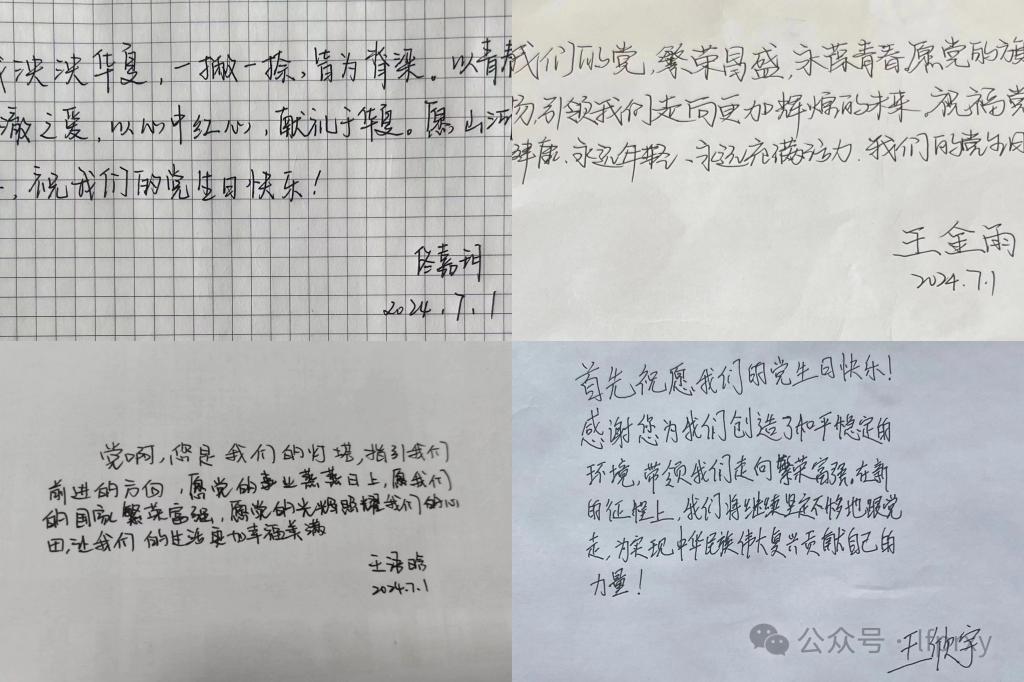 泱泱华夏，一撇一捺，皆为脊梁。以青春
澈之爱，以心中红心，献礼于华夏。愿山河
，祝我们的党生日快乐！
佟嘉珂
2024.7.1
我们的党，繁荣昌盛，永葆青春。愿党的旗
引领我们走向更加辉煌的未来。祝福党
健康、永远年轻、永远充满活力，我们的党生日
王金雨
2024.7.1
党啊，您是我们的灯塔，指引我们
前进的方向，愿党的事业蒸蒸日上，愿我们
的国家繁荣富强，愿党的光辉照耀我们的心
田，让我们的生活更加幸福美满
王
2024.7.1
首先祝愿我们的党生日快乐！
感谢您为我们创造了和平稳定的
环境，带领我们走向繁荣富强。在新
的征程上，我们将继续坚定不移地跟党
走，为实现中华民族伟大复兴贡献自己的
力量！
王宇
公众号